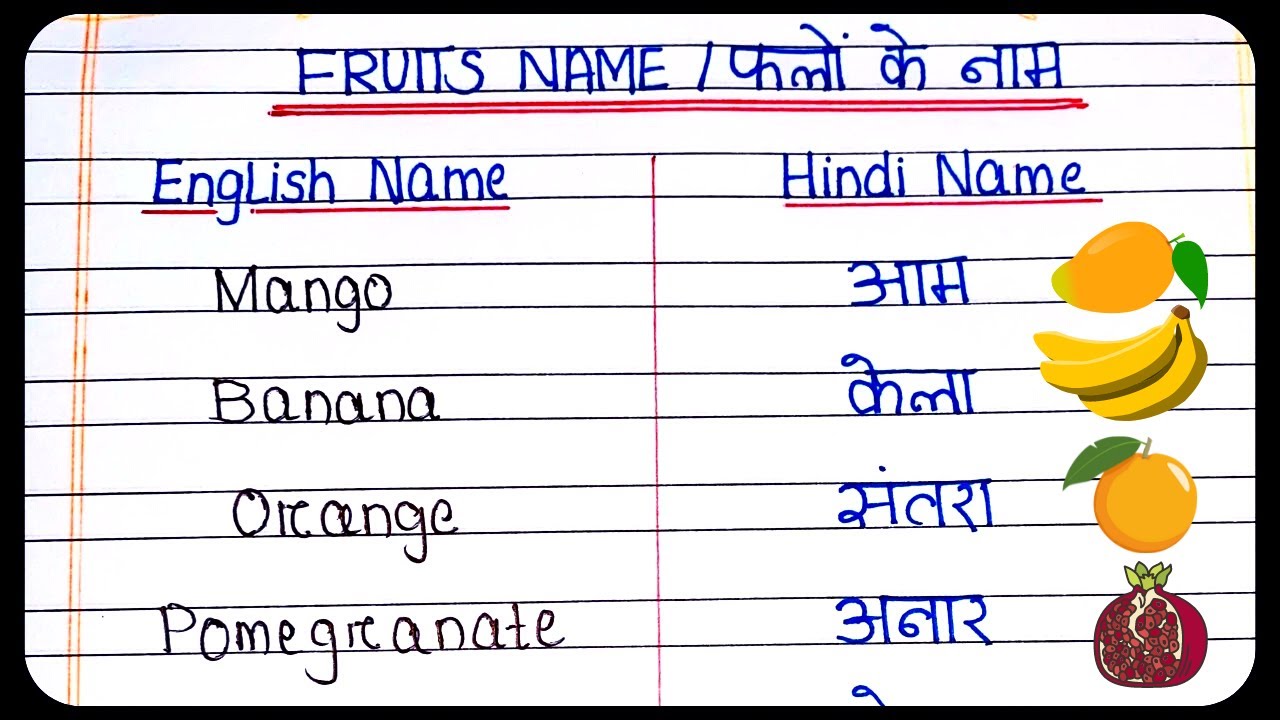 FRUITS NAME / फलों के नाम
English Name Hindi Name
Mango आम
Banana केला
Orange संतरा
Pomegranate अनार